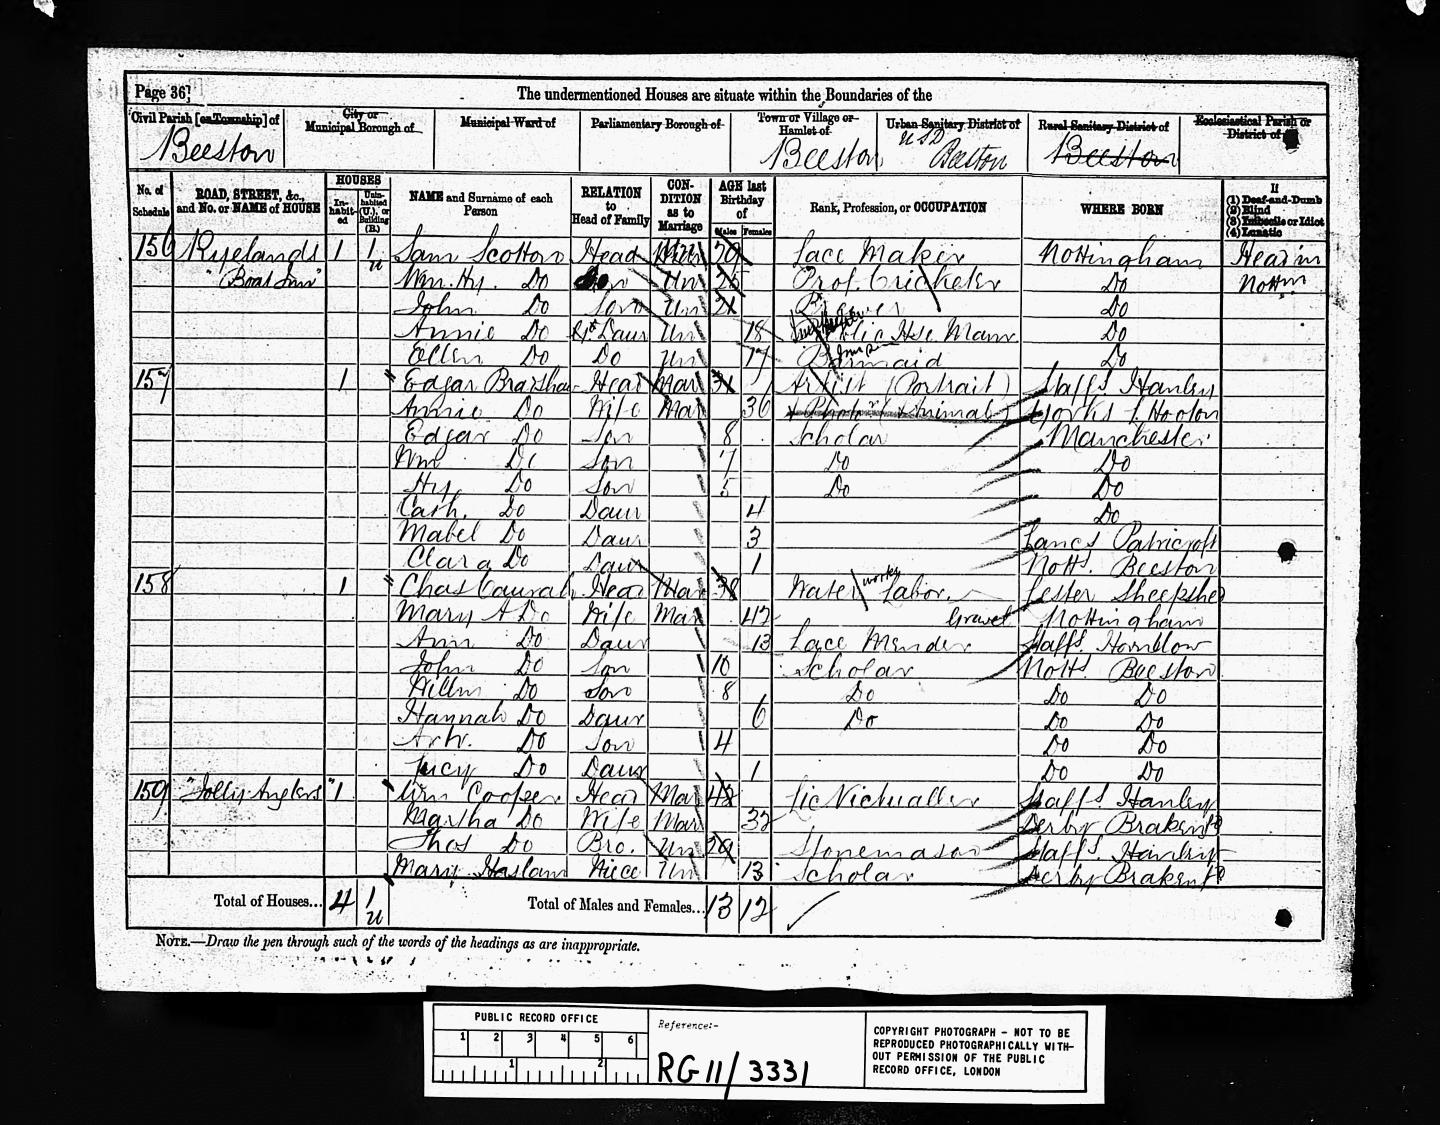 Page 36
The undermentioned Houses are situate within the Boundaries of the
Civil Parish [or Township] of
City or Municipal Borough of
Municipal Ward of
Parliamentary Borough of
Town or Village or Hamlet of
Urban Sanitary District of
Rural Sanitary District of
Ecclesiastical Parish or District of
Beeston Beeston USD Beeston Beeston
No. of Schedule
ROAD, STREET, &c., and No. or NAME of HOUSE
HOUSES
In-habit-ed
Unin-habited (U.), or Building (B.)
NAME and Surname of each Person
RELATION to Head of Family
CON-DITION as to Marriage
AGE last Birthday of
Males Females
Rank, Profession, or OCCUPATION
WHERE BORN
If
(1) Deaf-and-Dumb
(2) Blind
(3) Imbecile or Idiot
(4) Lunatic
156 Ryelands 1 1 u Sam Scotton Head Lace Maker Nottingham Head in
"Boat Inn" Wm. Hy. Do Son Un 25 Prof. Cricketer Do Nottm
John Do Son Un 21 Do
Annie Do Daur Un 18 Hse. Manr Do
Ellen Do Do Un 17 Barmaid Do
157 1 Edgar Bradshaw Head Mar 31 Artist (Portrait) Staffs Hanley
Annie Do Wife Mar 30 Yorks Hooton
Edgar Do Son 8 Scholar Manchester
Wm Do Son 7 Do Do
Hy. Do Son 5 Do Do
Cath. Do Daur 4 Do
Mabel Do Daur 3 Lancs Patricroft
Clara Do Daur 1 Notts. Beeston
158 1 Chas Head Mar 38 Water works Labor. Lester Sheepshed
Mary A Do Wife Mar 42 Gravel Nottingham
Ann Do Daur 13 Lace Mender Staffs. Horninlow
John Do Son 10 Scholar Notts Beeston
Willm Do Son 8 Do Do Do
Hannah Do Daur 6 Do Do Do
Arthr. Do Son 4 Do Do
Lucy Do Daur 1 Do Do
159 "Jolly Anglers" 1 Wm Cooper Head Mar 42 Lic Victualler Staffs. Hanley
Martha Do Wife Mar 32 Derby
Thos Do Bro. Un 29 Stonemason Staffs. Hanley
Mary Haslam Niece Un 13 Scholar Derby
Total of Houses... 4 1 u Total of Males and Females... 13 12
NOTE.—Draw the pen through such of the words of the headings as are inappropriate.
PUBLIC RECORD OFFICE
1 2 3 4 5 6
1 2
Reference:-
RG 11/3331
COPYRIGHT PHOTOGRAPH - NOT TO BE
REPRODUCED PHOTOGRAPHICALLY WITH-
OUT PERMISSION OF THE PUBLIC
RECORD OFFICE, LONDON